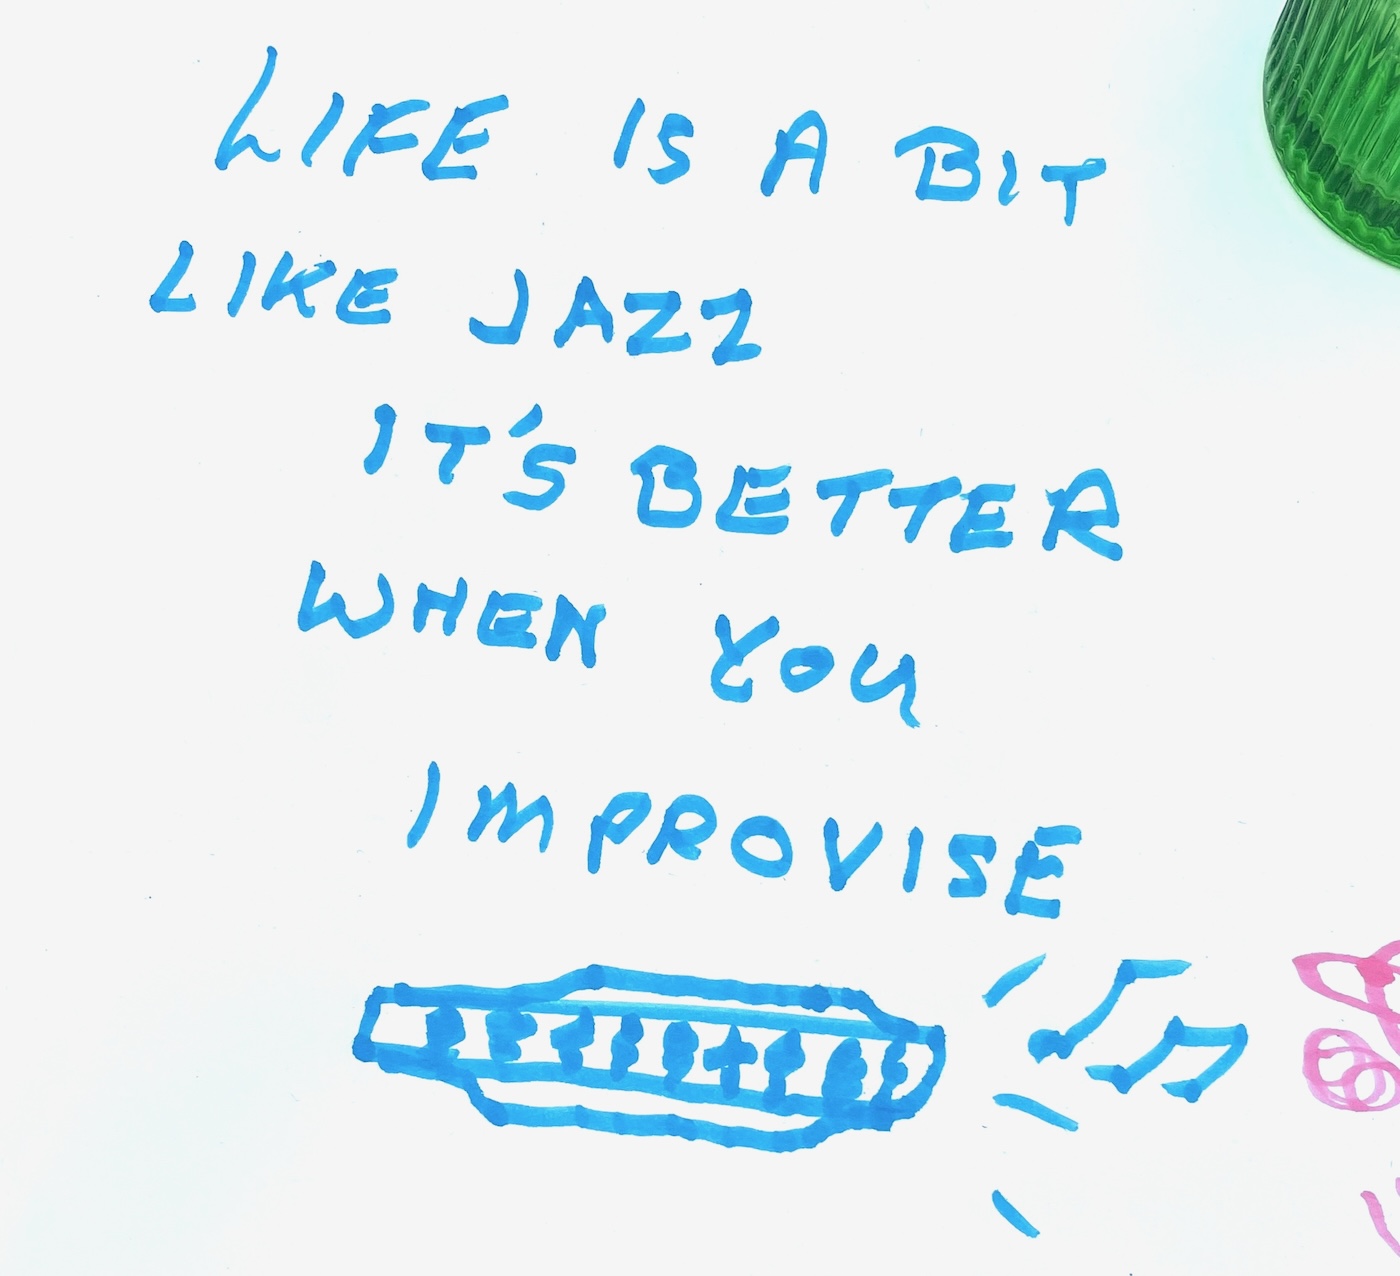 LIFE IS A BIT
LIKE JAZZ
IT'S BETTER
WHEN YOU
IMPROVISE